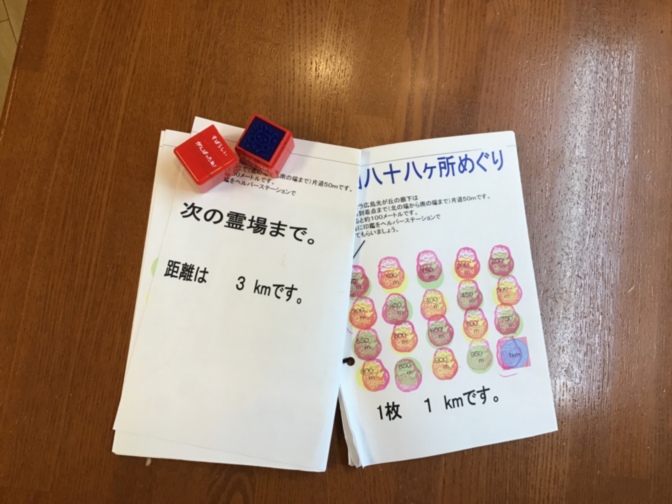 すばらしい
がんばったね!
南の端まで)片道50mです。
00メートルです。
印鑑をヘルパーステーションで
次の霊場まで。
距離は 3 kmです。
八十八ヶ所めぐり
広島光が丘の廊下は
到着点まで(北の端から南の端まで)片道50mです。
と約100メートルです。
に印鑑をヘルパーステーションで
てもらいましょう。
1km
1枚 1 kmです。